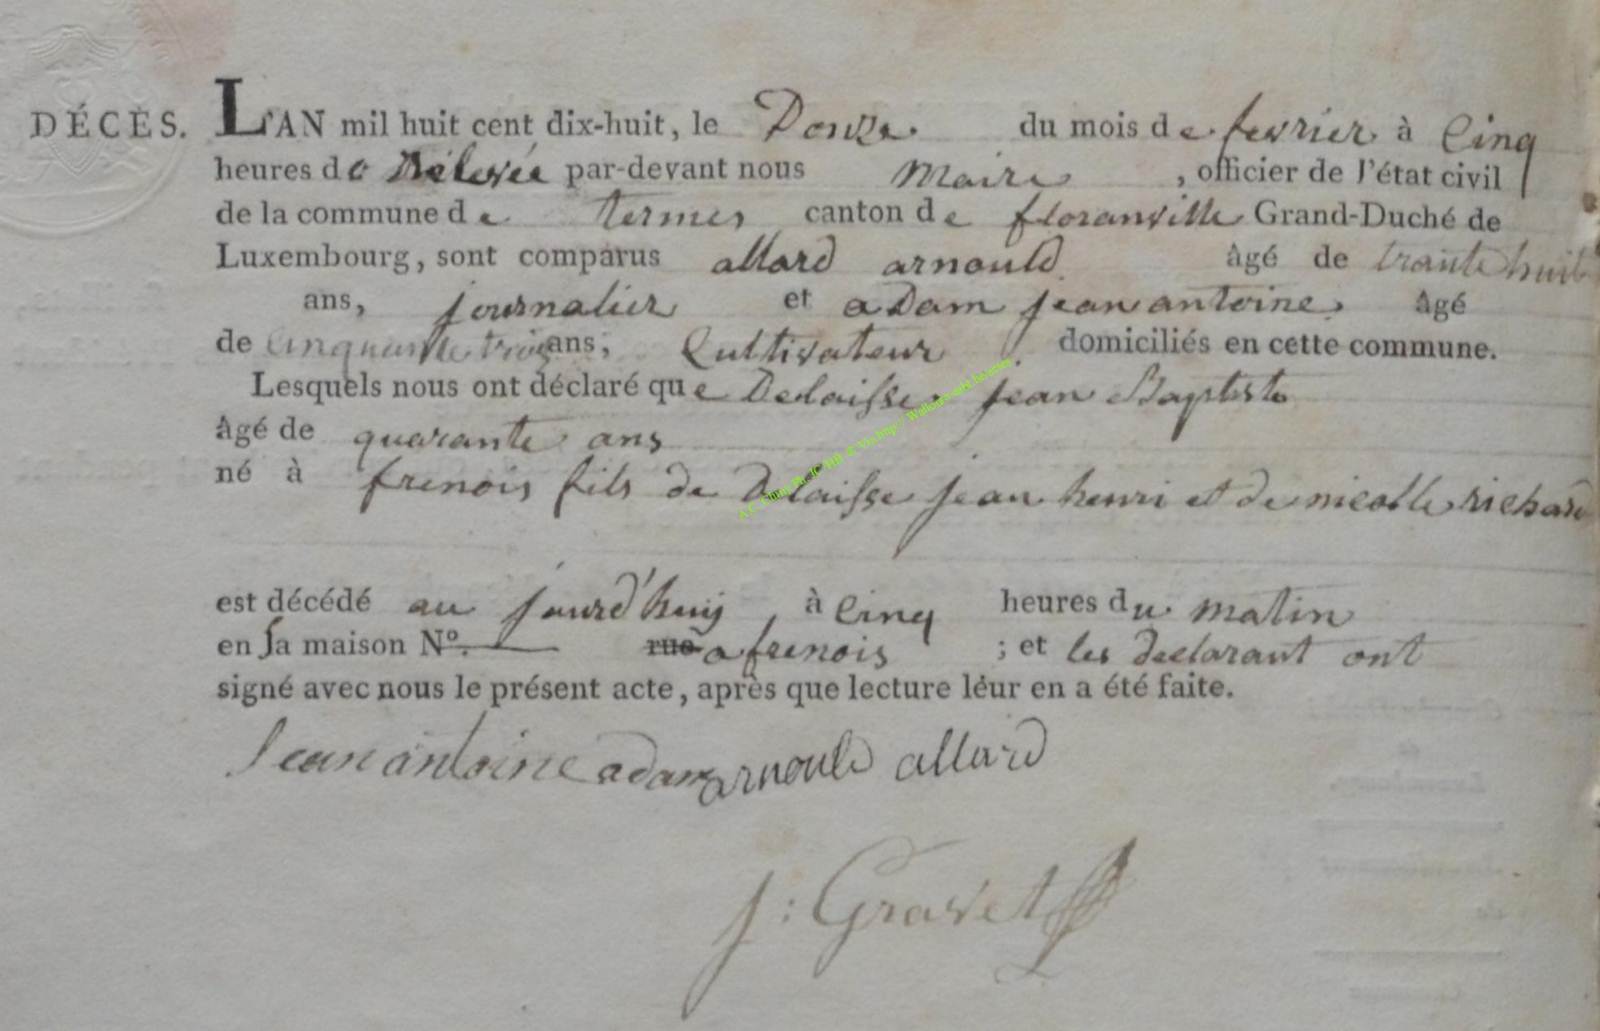 DÉCÈS. L'AN mil huit cent dix-huit, le Douze du mois de fevrier à Cinq
heures de Relevée par-devant nous Maire , officier de l'état civil
de la commune de termes canton de floranville Grand-Duché de
Luxembourg, sont comparus allard arnould âgé de trante huit
ans, journalier et adam jean antoine âgé
de Cinquante trois ans, Cultivateur domiciliés en cette commune.
Lesquels nous ont déclaré que Delaisse jean Baptiste
âgé de quarante ans
né à frenois fils de Delaisse jean henri et de nicolle richard
est décédé au jourd'huij à Cinq heures du matin
en sa maison N°. rue a frenois ; et les declarant ont
signé avec nous le présent acte, après que lecture leur en a été faite.
Jean antoine adam arnould allard
j: Gravet